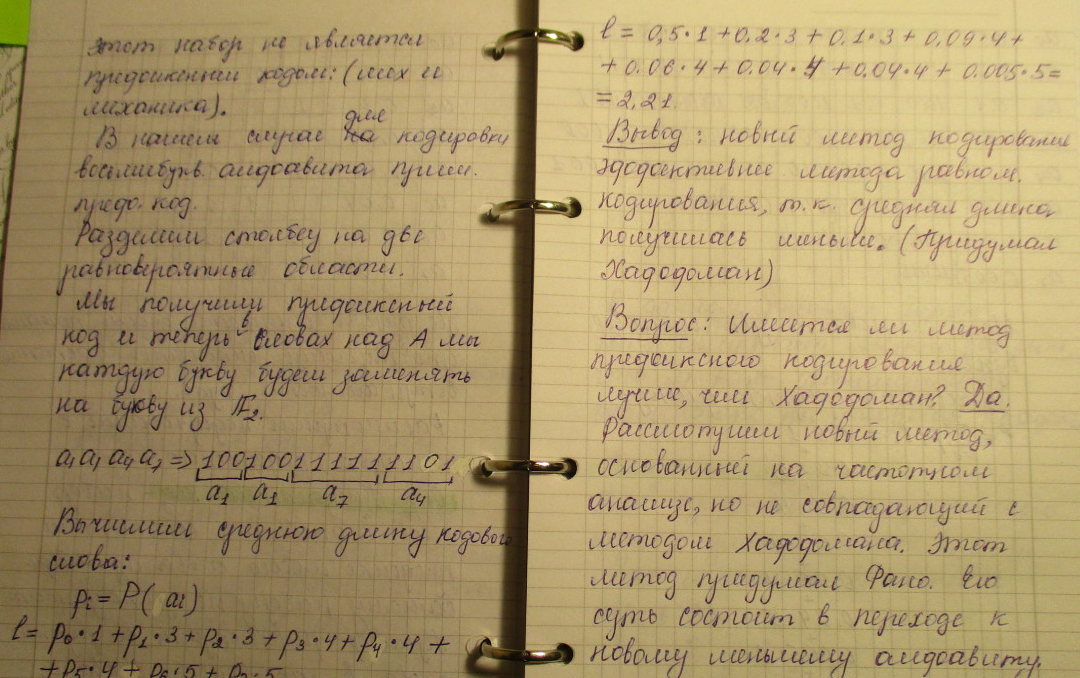 этот набор не является
префиксным кодом: (мех и
механика).
для
В нашем случае на кодировки
восьмибукв. алфавита прим.
преф. код.
Разделим столбец на две
равновероятные области.
Мы получили префиксный
код и теперь в словах над A мы
каждую букву будем заменять
на букву из F₂.
a₁a₁a₄a₇ => 100100111111101
a₁ a₁ a₇ a₄
Вычислим среднюю длину кодового
слова:
pᵢ = P(aᵢ)
l = p₀·1 + p₁·3 + p₂·3 + p₃·4 + p₄·4 +
+ p₅·4 + p₆·5 + p₇·5
l = 0,5·1 + 0.2·3 + 0.1·3 + 0,09·4 +
+ 0.06·4 + 0.04·4 + 0.04·4 + 0.005·5 =
= 2,21
Вывод: новый метод кодирования
эффективнее метода равном.
кодирования, т.к. средняя длина
получилась меньше. (Придумал
Хаффман)
Вопрос: Имеется ли метод
префиксного кодирования
лучше, чем Хаффоман? Да.
Рассмотрим новый метод,
основанный на частотном
анализе, но не совпадающий с
методом Хаффомана. Этот
метод придумал Фано. Его
суть состоит в переходе к
новому меньшему алфавиту.